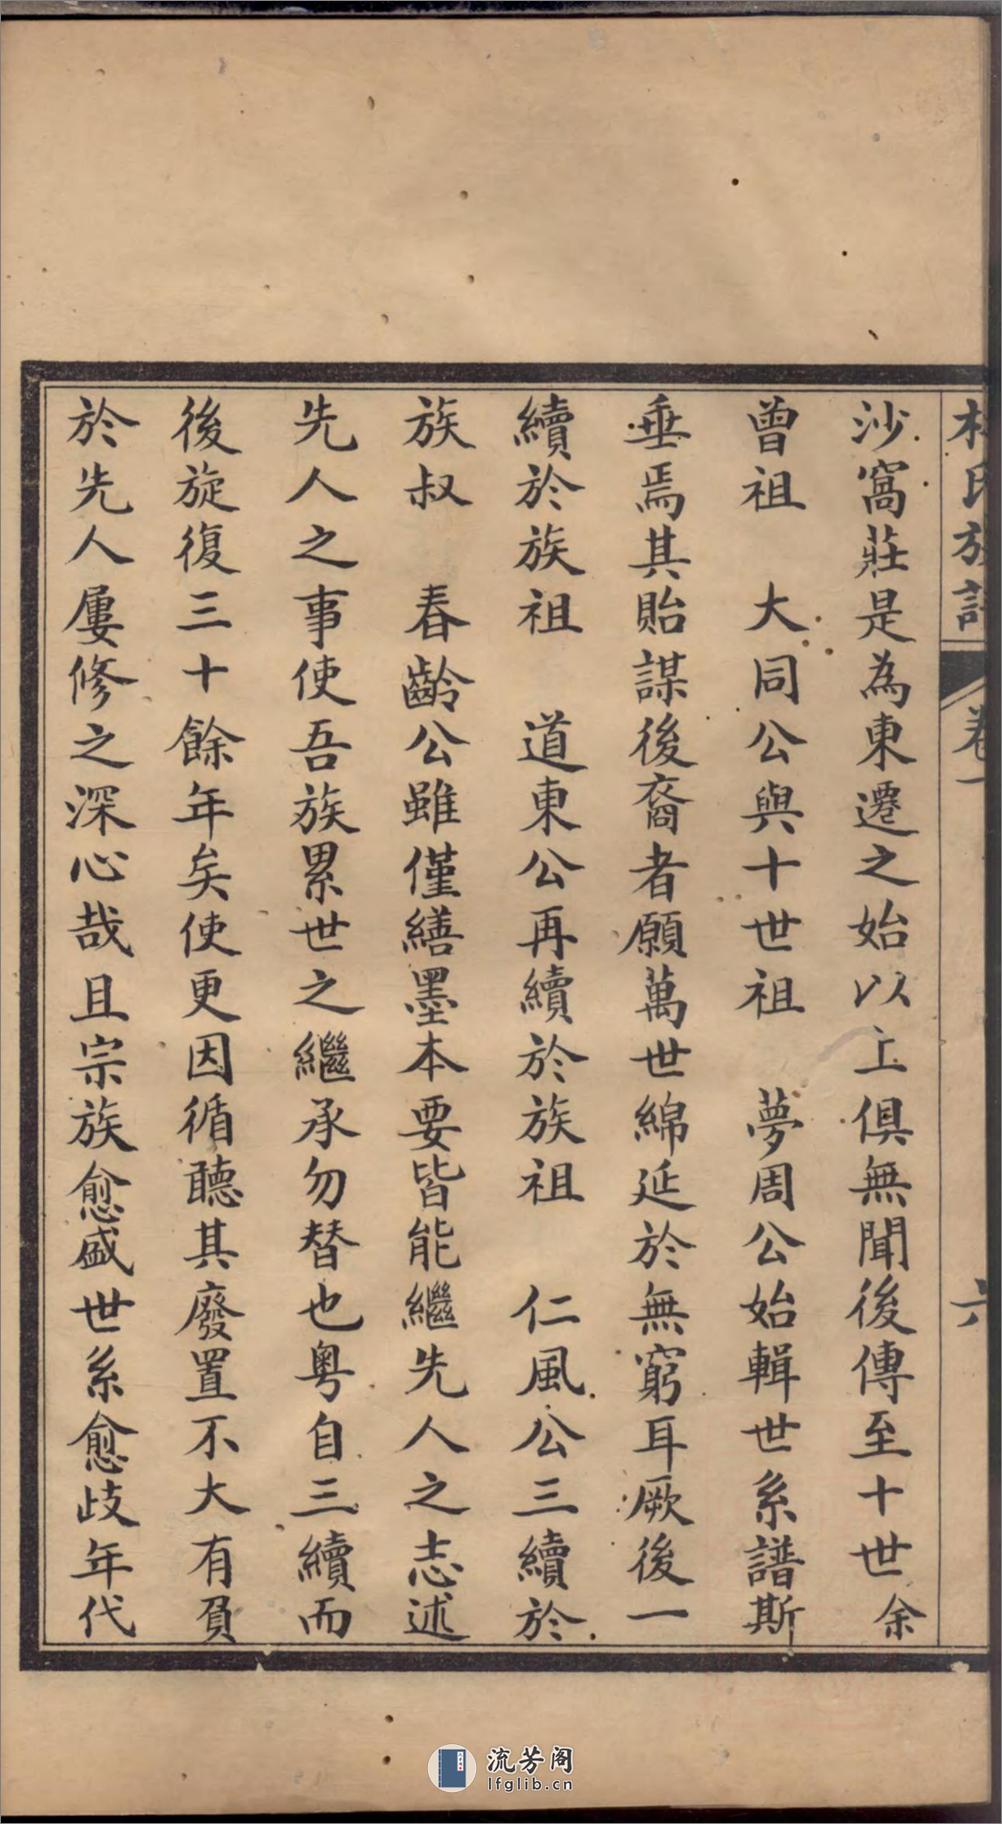 氏族譜 卷一 六
沙窩莊是為東遷之始以上俱無聞後傳至十世余
曾祖 大同公與十世祖 夢周公始輯世系譜斯
垂焉其貽謀後裔者願萬世綿延於無窮耳厥後一
續於族祖 道東公再續於族祖 仁風公三續於
族叔 春齡公雖僅繕墨本要皆能繼先人之志述
先人之事使吾族累世之繼承勿替也粵自三續而
後旋復三十餘年矣使更因循聽其廢置不大有負
於先人屢修之深心哉且宗族愈盛世系愈歧年代
流芳阁
lfglib.cn